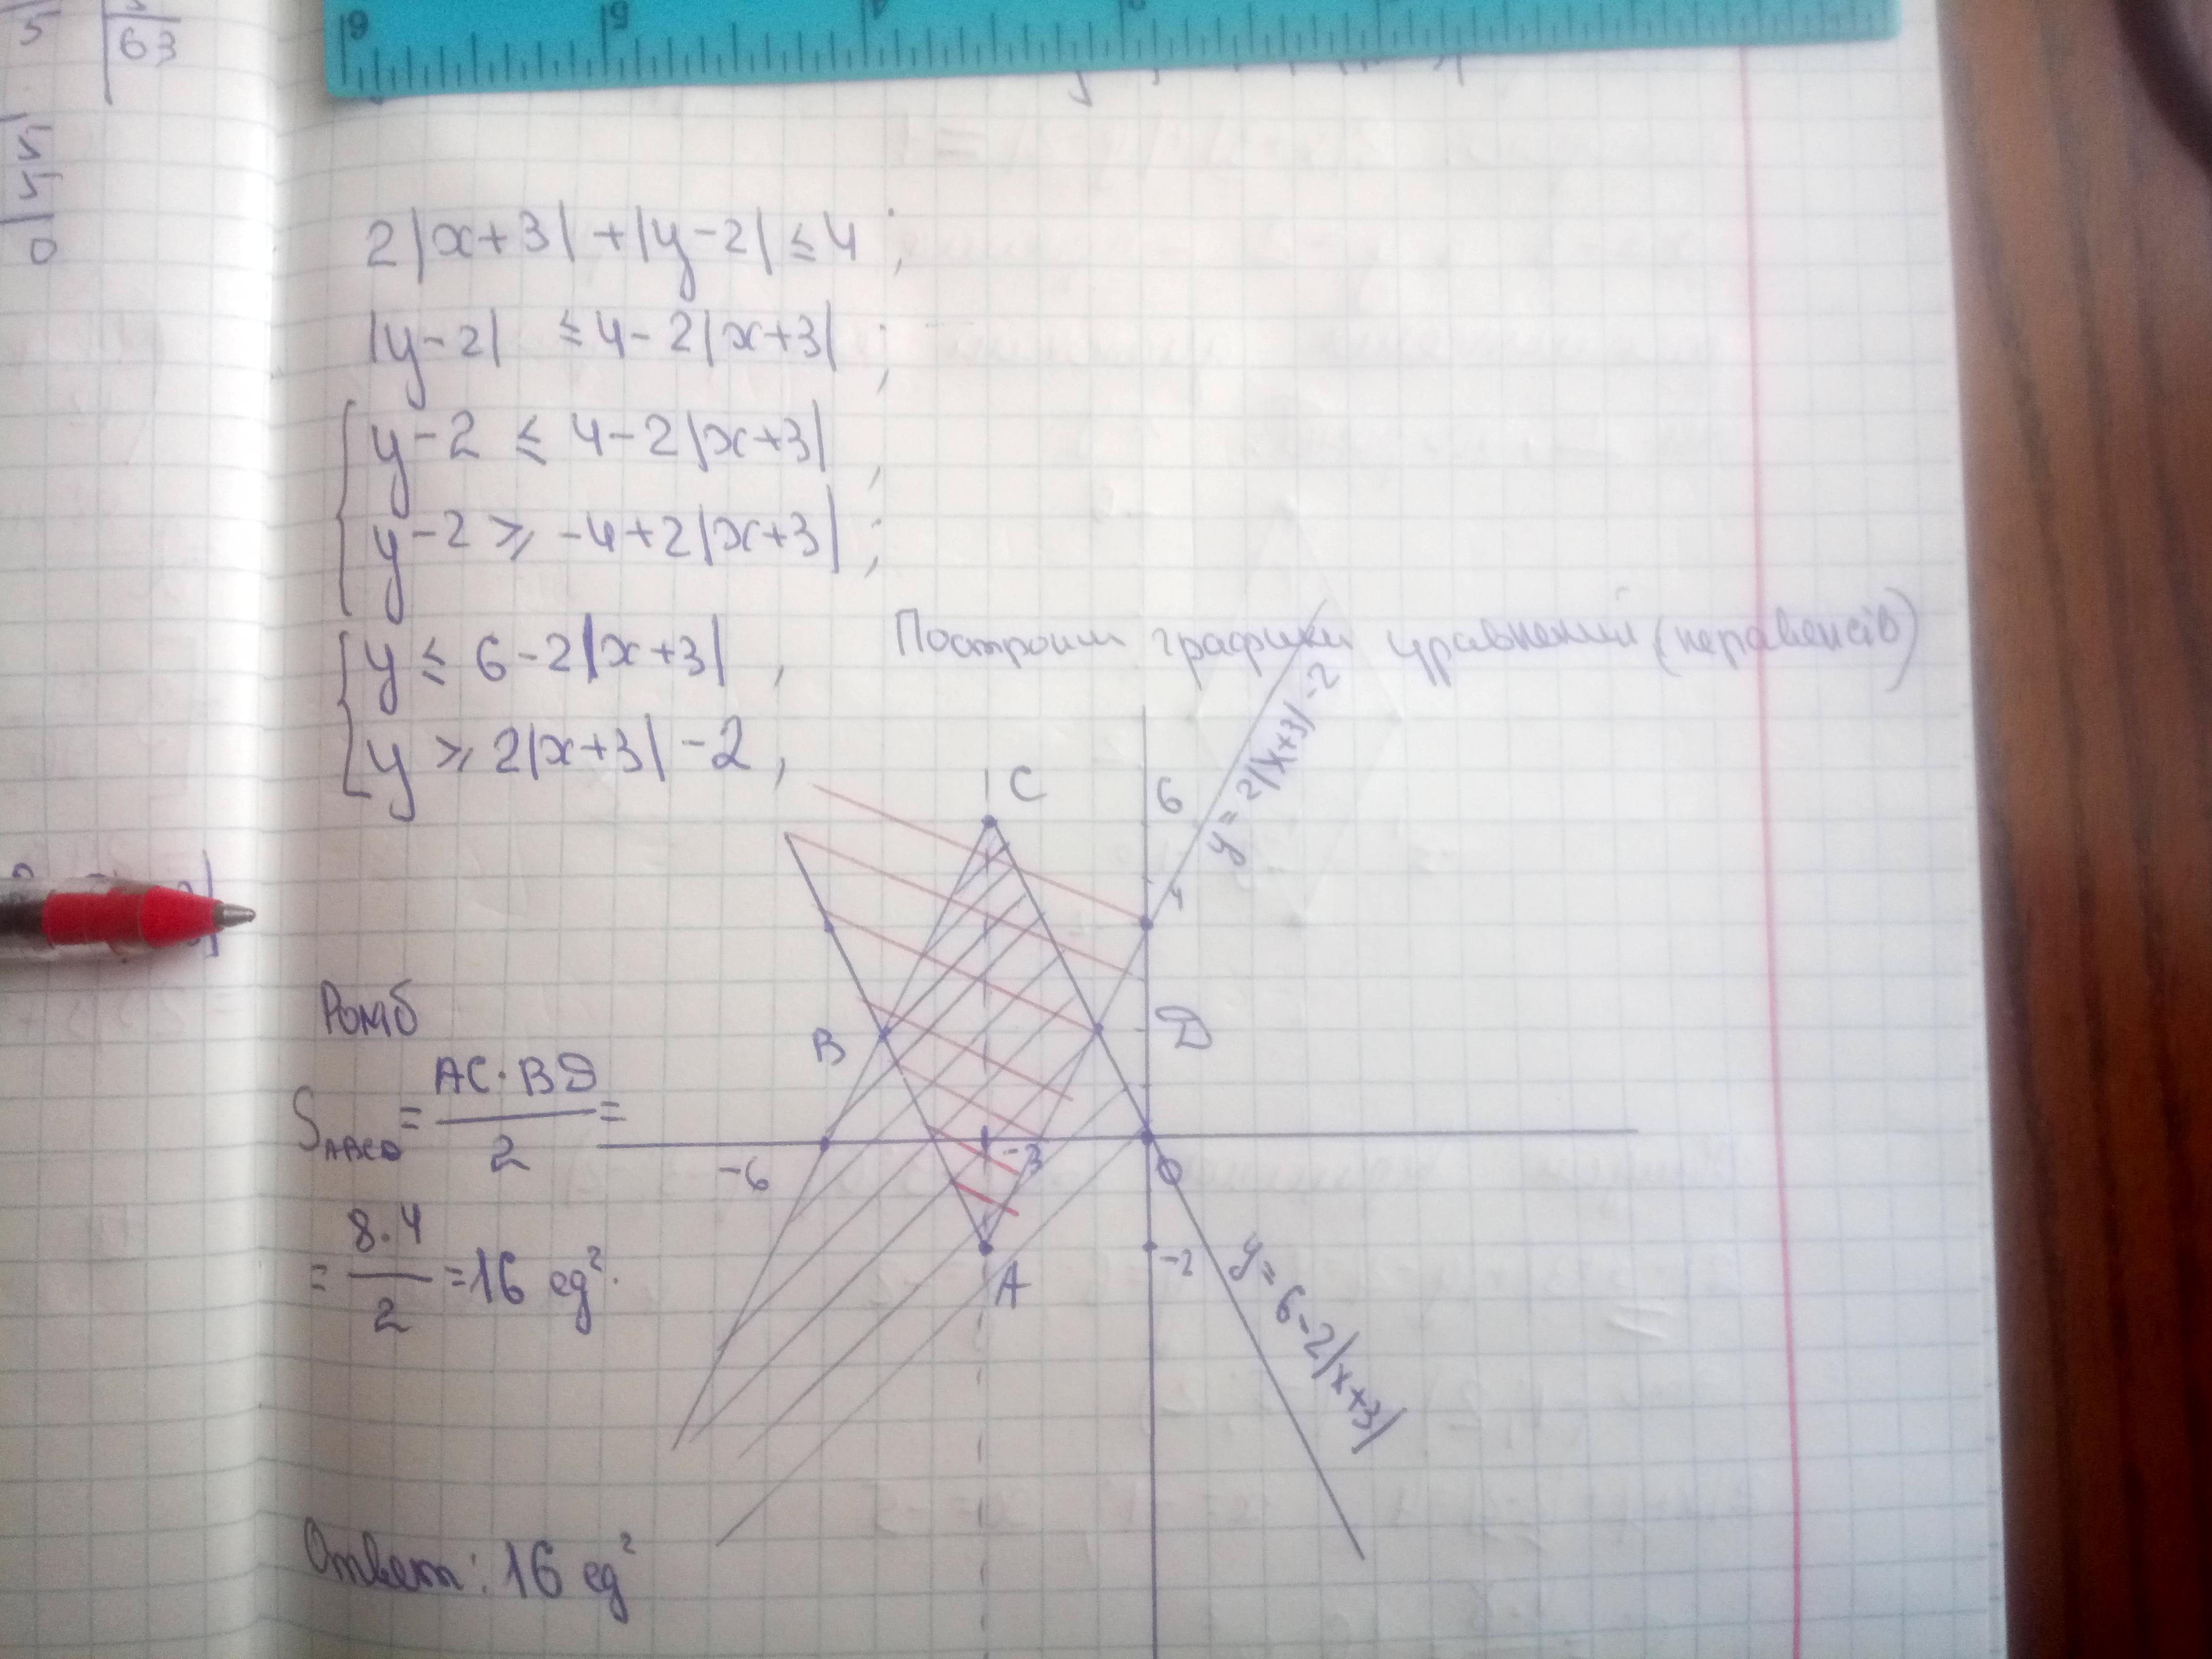 5
63
5
5
0
6 5 4 3
2|x+3| + |y-2| ≤ 4 ;
|y-2| ≤ 4-2|x+3| ;
y-2 ≤ 4-2|x+3| ,
y-2 ≥ -4+2|x+3| ;
y ≤ 6-2|x+3| ,
Построим графики уравнений (неравенств)
y ≥ 2|x+3| -2 ,
y = 2|x+3| -2
C
6
4
B
D
-6
-3
0
-2
A
y = 6-2|x+3|
Ромб
S ABCD = AC·BD / 2 =
= 8·4 / 2 = 16 ед².
Ответ: 16 ед²